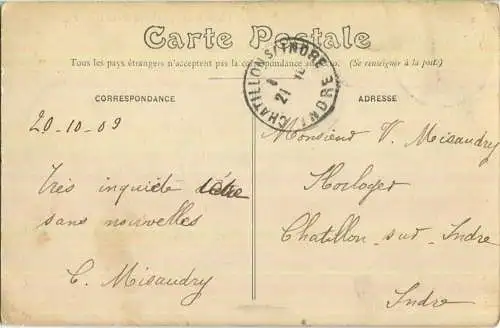 Carte Postale
Tous les pays étrangers n'acceptent pas la correspondance au recto. (Se renseigner à la poste)
CHATILLON S/ INDRE
21
INDRE
CORRESPONDANCE
ADRESSE
20-10-09
Très inquiète
sans nouvelles
C. Misaudry
Monsieur V. Misaudry
Horloger
Chatillon-sur-Indre
Indre